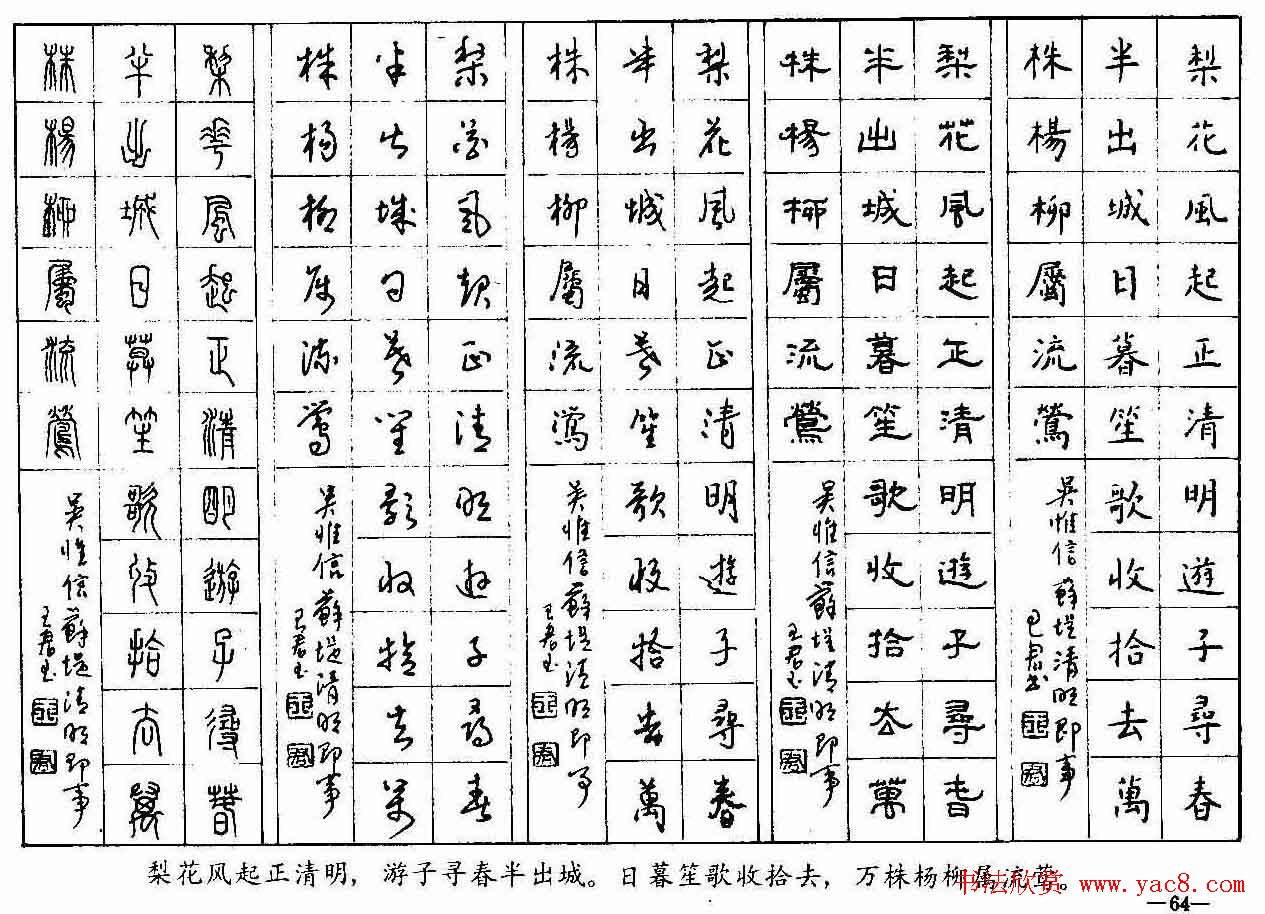 梨花風起正清明遊子尋春
半出城日暮笙歌收拾去萬
株楊柳屬流鶯
吳惟信蘇堤清明即事
梨花風起正清明遊子尋春
半出城日暮笙歌收拾去萬
株楊柳屬流鶯
吳惟信蘇堤清明即事
梨花風起正清明遊子尋春
半出城日暮笙歌收拾去萬
株楊柳屬流鶯
吳惟信蘇堤清明即事
梨花風起正清明遊子尋春
半出城日暮笙歌收拾去萬
株楊柳屬流鶯
吳惟信蘇堤清明即事
梨花風起正清明遊子尋春
半出城日暮笙歌收拾去萬
株楊柳屬流鶯
吳惟信蘇堤清明即事
梨花风起正清明，游子寻春半出城。日暮笙歌收拾去，万株杨柳属流莺。
书法欣赏 www.yac8.com
—64—